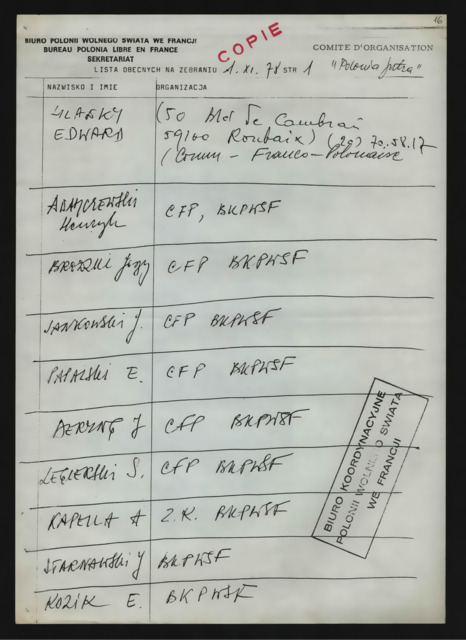 16
BIURO POLONII WOLNEGO SWIATA WE FRANCJI
BUREAU POLONIA LIBRE EN FRANCE
SEKRETARIAT
COPIE
COMITE D'ORGANISATION
LISTA OBECNYCH NA ZEBRANIU 1. XI. 78 STR 1
"Polonia jutra"
NAZWISKO I IMIE ORGANIZACJA
EDWARD
(50 Bld de Cambrai
59100 Roubaix) (20) 70.58.17
(Comm - Franco-Polonaise
ADAMCZEWSKI
Henryk
CFP, BKPWSF
Jerzy CFP BKPWSF
JANKOWSKI J. CFP BKPWSF
PAPALSKI E. CFP BKPWSF
J CFP BKPWSF
S. CFP BKPWSF
KAPELLA A Z.K. BKPWSF
STARNAWSKI J BKPWSF
KOZIK E. BKPWSF
BIURO KOORDYNACYJNE
POLONII WOLNEGO SWIATA
WE FRANCJI